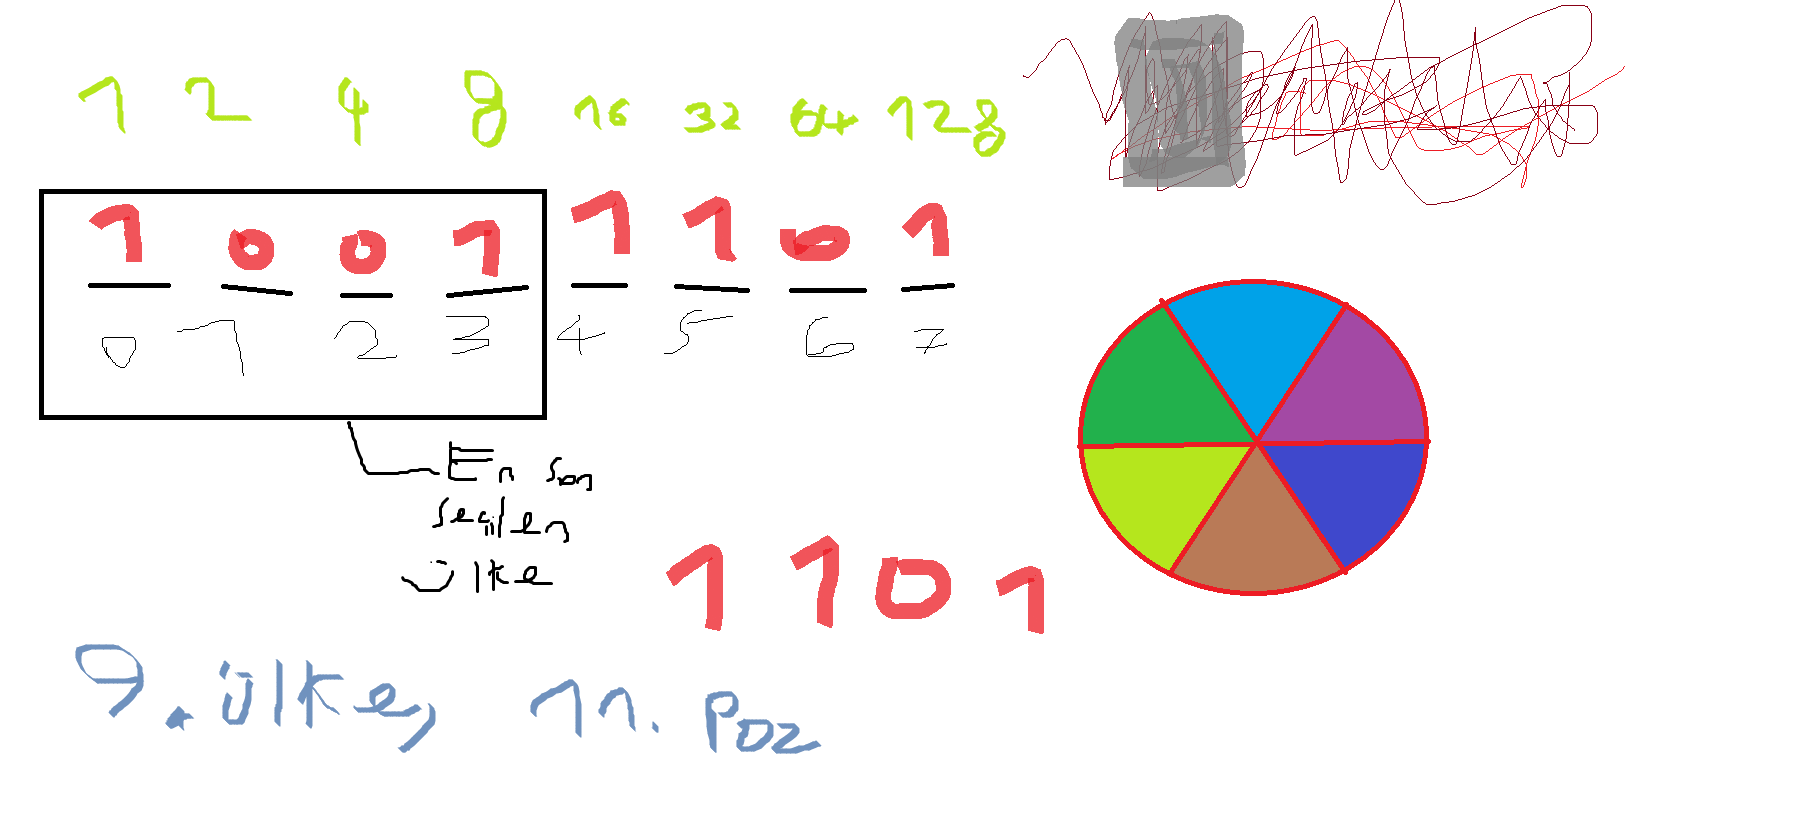 1 2 4 8 16 32 64 128
1 0 0 1 1 1 0 1
0 1 2 3 4 5 6 7
En son
seçilen
ülke
1 1 0 1
9. ülke, 11. poz